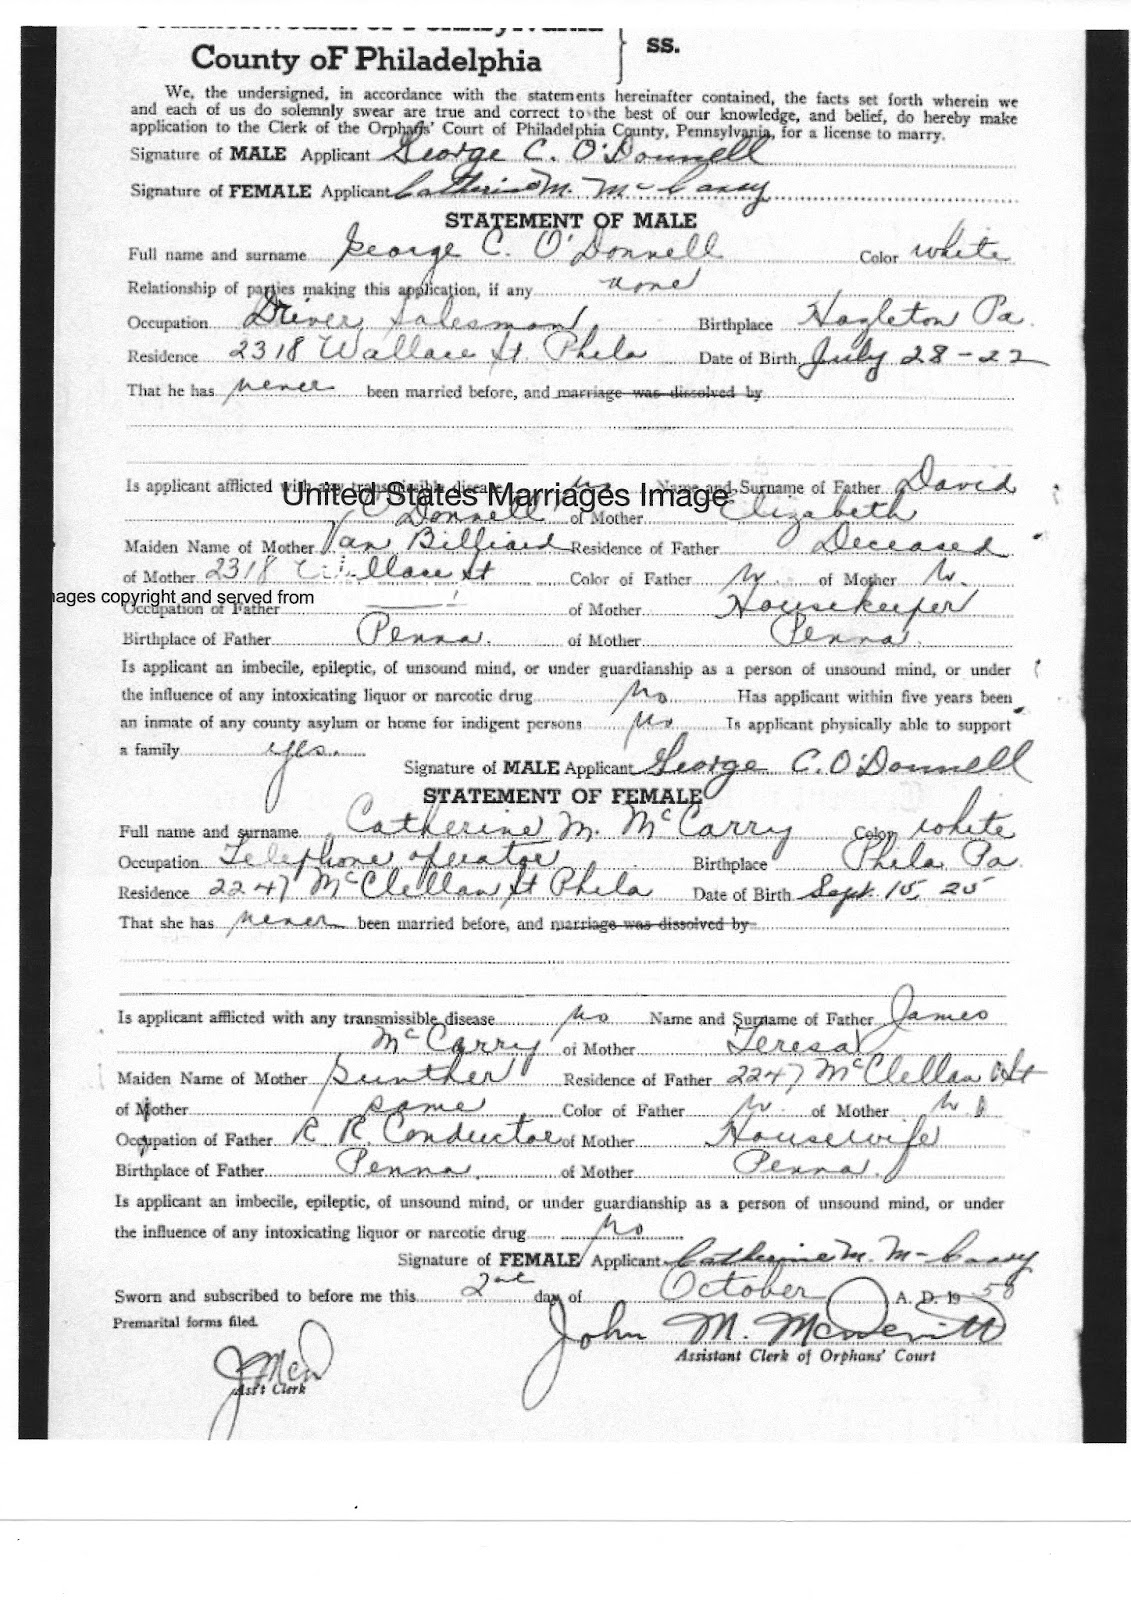 County oF Philadelphia
ss.
We, the undersigned, in accordance with the statements hereinafter contained, the facts set forth wherein we
and each of us do solemnly swear are true and correct to the best of our knowledge, and belief, do hereby make
application to the Clerk of the Orphans' Court of Philadelphia County, Pennsylvania, for a license to marry.
Signature of MALE Applicant George C. O'Donnell
Signature of FEMALE Applicant Catherine M. McCarry
STATEMENT OF MALE
Full name and surname George C. O'Donnell Color white
Relationship of parties making this application, if any none
Occupation Driver, Salesman, Birthplace Hazleton Pa.
Residence 2318 Wallace St. Phila Date of Birth July 28-22
That he has never been married before, and marriage was dissolved by
Is applicant afflicted with any transmissible disease no Name and Surname of Father David
United States Marriages Image
O'Donnell of Mother Elizabeth
Maiden Name of Mother Van Billiard Residence of Father Deceased
of Mother 2318 Wallace St Color of Father W. of Mother W.
ages copyright and served from
Occupation of Father of Mother Housekeeper
Birthplace of Father Penna. of Mother Penna.
Is applicant an imbecile, epileptic, of unsound mind, or under guardianship as a person of unsound mind, or under
the influence of any intoxicating liquor or narcotic drug no Has applicant within five years been
an inmate of any county asylum or home for indigent persons no Is applicant physically able to support
a family yes.
Signature of MALE Applicant George C. O'Donnell
STATEMENT OF FEMALE
Full name and surname Catherine M. McCarry Color white
Occupation Telephone operator Birthplace Phila. Pa.
Residence 2247 McClellan St Phila Date of Birth Sept. 15, 25
That she has never been married before, and marriage was dissolved by
Is applicant afflicted with any transmissible disease no Name and Surname of Father James
McCarry of Mother Teresa
Maiden Name of Mother Gunther Residence of Father 2247 McClellan St
of Mother same Color of Father W. of Mother W.
Occupation of Father R. R. Conductor of Mother Housewife
Birthplace of Father Penna. of Mother Penna.
Is applicant an imbecile, epileptic, of unsound mind, or under guardianship as a person of unsound mind, or under
the influence of any intoxicating liquor or narcotic drug no
Signature of FEMALE Applicant Catherine M. McCarry
Sworn and subscribed to before me this 2nd day of October A. D. 19 50
Premarital forms filed.
John M. McDevitt
Assistant Clerk of Orphans' Court
JMcD
Ass't Clerk